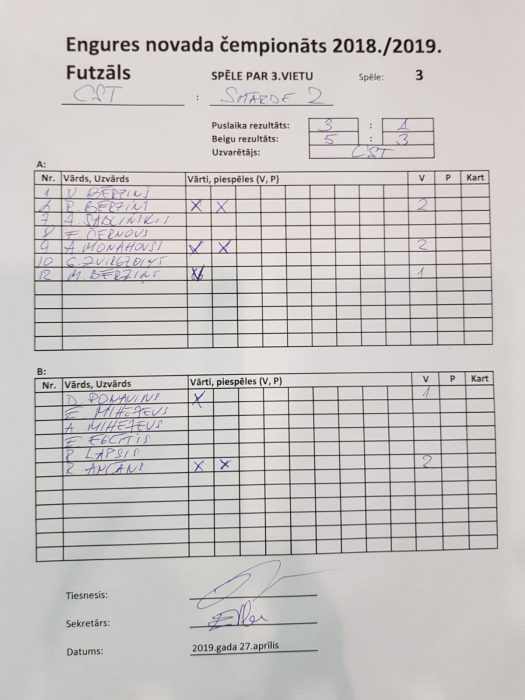 Engures novada čempionāts 2018./2019.
Futzāls SPĒLE PAR 3.VIETU Spēle: 3
CST : SMĀRDE 2
Puslaika rezultāts: 3 : 1
Beigu rezultāts: 5 : 3
Uzvarētājs: CST
A:
Nr. Vārds, Uzvārds Vārti, piespēles (V, P) V P Kart
1 BĒRZIŅŠ
2 R BĒRZIŅŠ X X 2
7
8 F ČERNOVS
9 A MONAHOVS X X 2
10
12 M BĒRZIŅŠ X 1
B:
Nr. Vārds, Uzvārds Vārti, piespēles (V, P) V P Kart
D. X 1
E MIHEJEVS
A MIHEJEVS
EGLĪTIS
R LAPSIS
R ANCĀNS X X 2
Tiesnesis:
Sekretārs:
Datums: 2019.gada 27.aprīlis